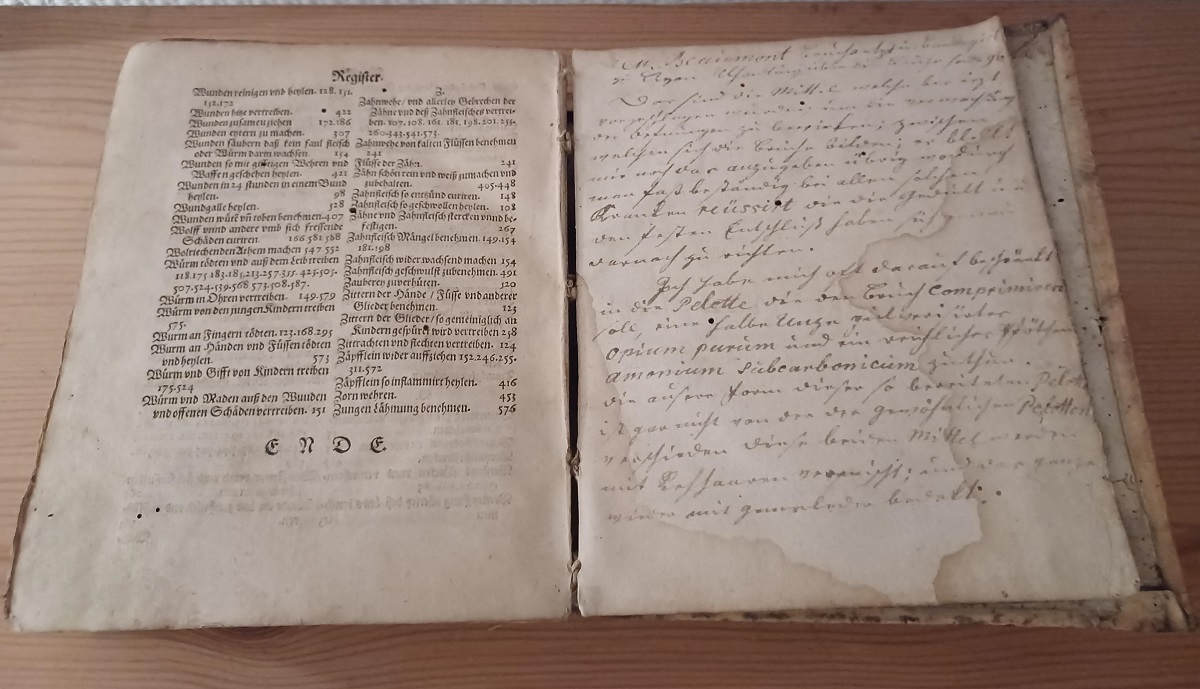 Register.
Wunden reinigen vnd heylen. 128. 151.
152.172
Wunden hitze vertreiben. 422
Wunden zusamen ziehen 172.186
Wunden eytern zu machen. 307
Wunden säubern daß kein faul fleisch
oder Würm darin wachsen. 154
Wunden so mit gifftigen Wehren vnd
Waffen geschehen heylen. 421
Wunden in 24 stunden in einem Bund
heylen. 98
Wundgalle heylen. 528
Wunden würd vñ toben benehmen 407
Wolff vnnd andere vmb sich fressende
Schäden curiren. 166.581.588
Wolriechenden Athem machen 547.552
Würm tödten vnd auß dem Leib treiben
118.175.183.185.213.257.355.425.505.
507.524.539.568 573.508.587.
Würm in Ohren vertreiben. 149.579
Würm von den jungen Kindern treiben
575.
Würm an Fingern tödten. 123.168.295
Würm an Händen vnd Füssen tödten
vnd heylen. 573
Würm vnd Gifft von Kindern treiben
175.524
Würm vnd Maden auß den Wunden
vnd offenen Schäden vertreiben. 151
Z.
Zahnwehe / vnd allerley Gebrechen der
Zähne vnd deß Zahnfleisches vertrei-
ben. 107. 108. 161. 181. 198. 201. 255.
260.343.541.573.
Zahnwehe von kalten Flüssen benehmen
241
Flüsse der Zähn. 241
Zähn schön rein vnd weiß zu machen vnd
zubehalten. 405.448
Zahnfleisch so entzünd curiren. 148
Zahnfleisch so geschwollen heylen. 108
Zähne vnd Zahnfleisch stercken vnnd be-
festigen. 267
Zahnfleisch Mängel benehmen. 149.154
181.198
Zahnfleisch wider wachsend machen 154
Zahnfleisch geschwulst zubenehmen. 491
Zauberey zu verhüten. 520
Zittern der Hände / Füsse vnd anderer
Glieder benehmen. 125
Zittern der Glieder / so gemeiniglich an
Kindern gespürt wird vertreiben 238
Zittrachten vnd flechten vertreiben. 124
Zäpfflein wider auffziehen 152.246.255.
311.572
Zäpfflein so inflammirt heylen. 416
Zorn wehren. 453
Zungen Lähmung benehmen. 576
E N D E.
M. Beaumont
zu Lyon
Das sind die Mittel welche bis jetzt
vorgeschlagen wurden um die
der zu
welchen sich die Brüche bilden; es bleibt
mir noch das anzugeben übrig wodurch
man fast beständig bei allen solchen
Kranken réüssirt die die Gedult und
den festen Entschluß haben sich genau
darnach zu richten.
Ich habe mich oft darauf beschränkt
in die Pelotte die den Bruch comprimiren
soll eine halbe Unze
opium purum und ein reichliches
amonium subcarbonicum zu thun.
die äusere Form dieser so bereiteten Pelotte
ist gar nicht von der der gewöhnlichen Pelotten
verschieden diese beiden Mittel werden
mit Rehhaaren vermischt, und das ganze
wieder mit gemsleder bedekt.